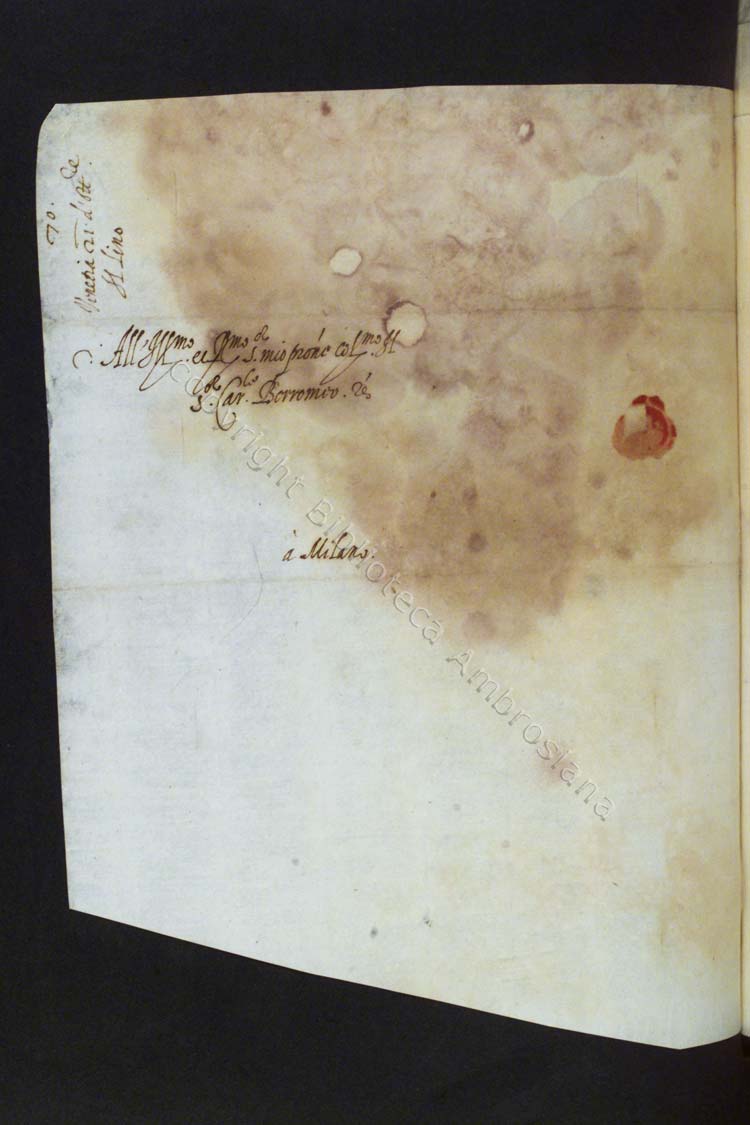 70.
Venetia 21 d'
Il Lino
All' Ill.mo et R.mo S.or mio prone col.mo Il
S.or Car.lo Borromeo.
à Milano.
Copyright Biblioteca Ambrosiana